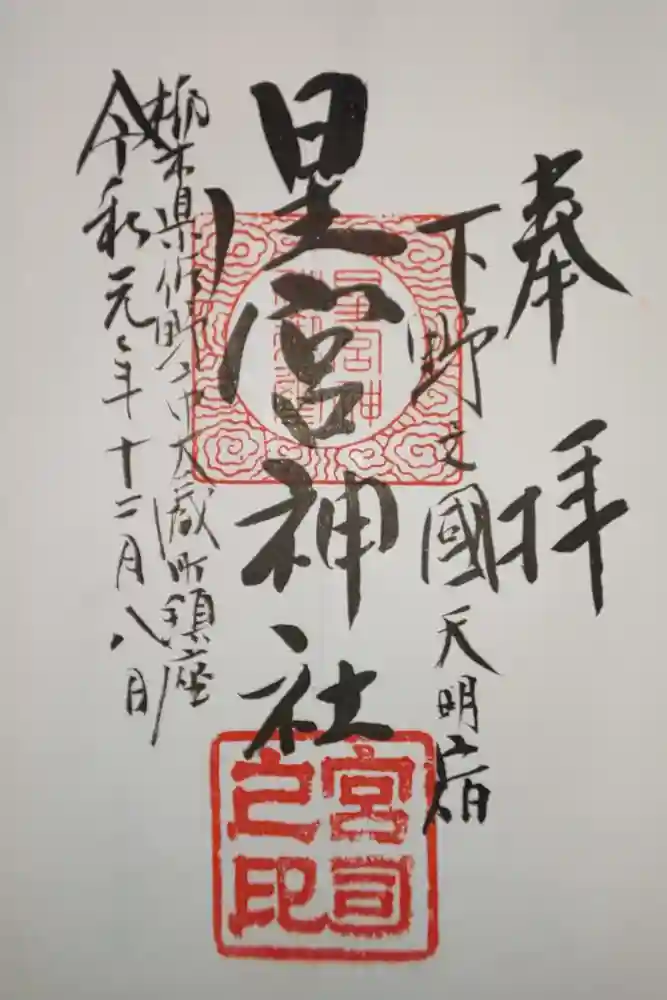 奉拝
下野之國天明宿
星宮神社
栃木県佐野市大蔵町鎮座
令和元年十二月八日
宮司
之印